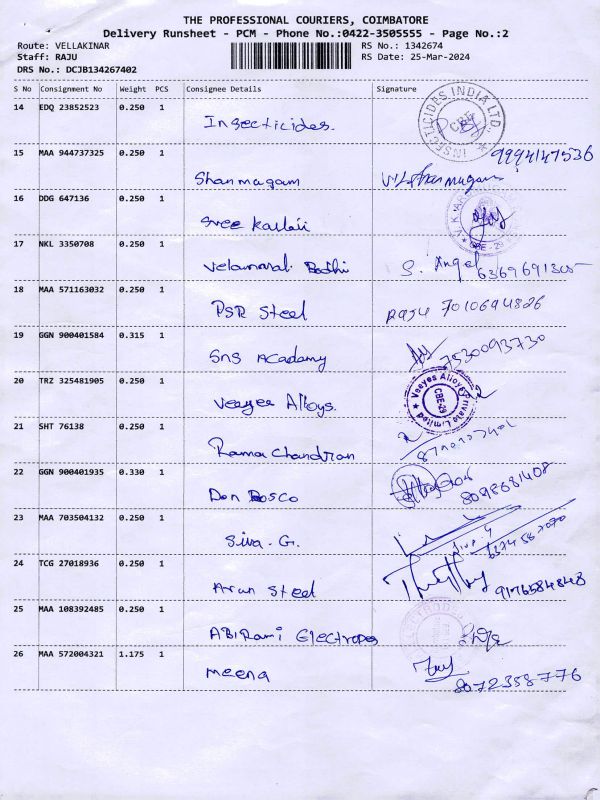 THE PROFESSIONAL COURIERS, COIMBATORE
Delivery Runsheet - PCM - Phone No.:0422-3505555 - Page No.:2
Route: VELLAKINAR RS No.: 1342674
Staff: RAJU RS Date: 25-Mar-2024
DRS No.: DCJB134267402
S No Consignment No Weight PCS Consignee Details Signature
14 EDQ 23852523 0.250 1
Insecticides.
INSECTICIDES INDIA LTD. CBE
15 MAA 944737325 0.250 1 9994147536
Shanmugam
16 DDG 647136 0.250 1
Sree Kallaii
17 NKL 3350708 0.250 1
Velammal Bodhi S. Angel 6369691305
18 MAA 571163032 0.250 1
PSR Steel Raju 7010694826
19 GGN 900401584 0.315 1
SNS Acadamy 7530093730
20 TRZ 325481905 0.250 1
Veeyes Alloys.
Veeyes Alloys Private Limited CBE-29
21 SHT 76138 0.250 1
Rama Chandran
22 GGN 900401935 0.330 1
Don Bosco 8098681408
23 MAA 703504132 0.250 1
Siva. G.
24 TCG 27018936 0.250 1
Arun Steel 9176584848
25 MAA 108392485 0.250 1
ABIRami Electrodes
26 MAA 572004321 1.175 1
meena 8072358776